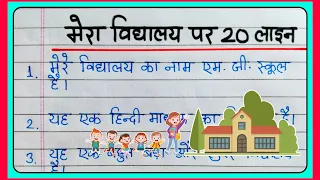 मेरा विद्यालय पर 20 लाइन
1. मेरे विद्यालय का नाम एम. जी. स्कूल
है।
2. यह एक हिन्दी का है।
3. यह एक बहुत बड़ा
है।